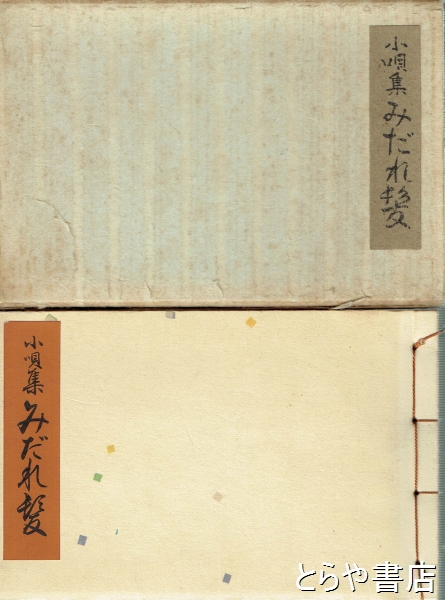 小唄集 みだれ髪
小唄集 みだれ髪
とらや書店